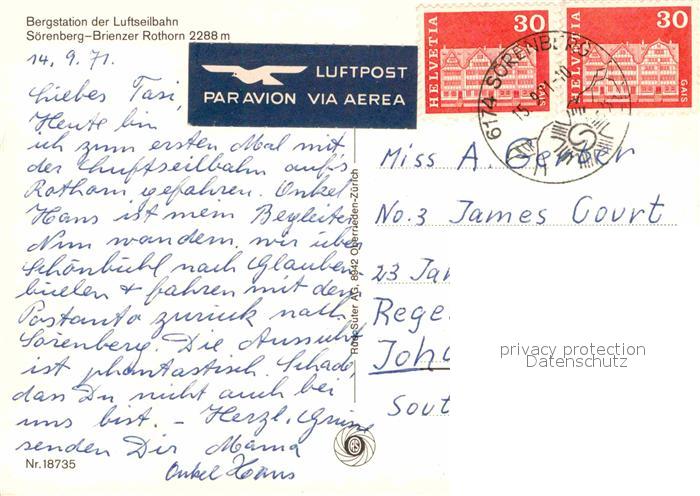 Bergstation der Luftseilbahn
Sörenberg–Brienzer Rothorn 2288 m
14. 9. 71.
Liebes Tasi,
Heute bin
ich zum ersten Mal mit
der Luftseilbahn auf's
Rothorn gefahren. Onkel
Hans ist mein Begleiter
Nun wandern wir über
Schönbühl nach Glauben
bielen & fahren mit dem
Postauto zurück nach
Sörenberg. Die Aussicht
ist phantastisch. Schade,
dass Du nicht auch bei
uns bist. – Herzl. Grüsse
senden Dir Mama
Onkel Hans
Nr. 18735
LUFTPOST
PAR AVION VIA AEREA
HELVETIA 30 GAIS
HELVETIA 30 GAIS
6174 SÖRENBERG
Miss A. Gerber
No. 3 James Court
23 Jan
Rege
Joha
Sout
RotaSuter AG, 8942 Oberrieden-Zürich
privacy protection
Datenschutz